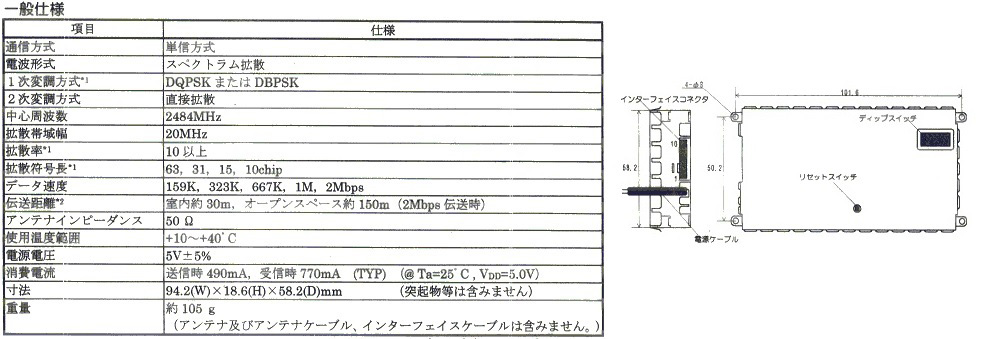 一般仕様
項目 仕様
通信方式 単信方式
電波形式 スペクトラム拡散
1次変調方式*1 DQPSK または DBPSK
2次変調方式 直接拡散
中心周波数 2484MHz
拡散帯域幅 20MHz
拡散率*1 10以上
拡散符号長*1 63, 31, 15, 10chip
データ速度 159K, 323K, 667K, 1M, 2Mbps
伝送距離*2 室内約30m, オープンスペース約150m(2Mbps伝送時)
アンテナインピーダンス 50Ω
使用温度範囲 +10~+40℃
電源電圧 5V±5%
消費電流 送信時490mA, 受信時770mA (TYP) (@Ta=25℃, VDD=5.0V)
寸法 94.2(W)×18.6(H)×58.2(D)mm (突起物等は含みません)
重量 約105g
(アンテナ及びアンテナケーブル、インターフェイスケーブルは含みません。)
インターフェイスコネクタ
101.6
ディップスイッチ
10
1
58.2
50.2
リセットスイッチ
電源ケーブル